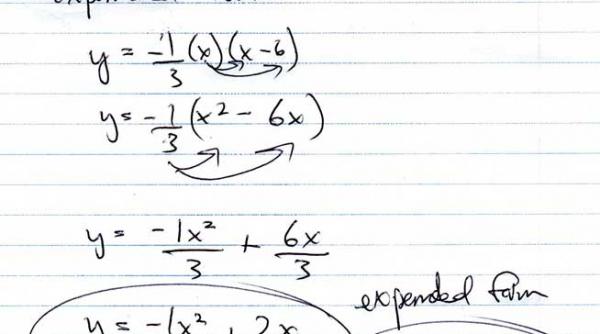 y = -1/3 (x)(x-6)
y = -1/3 (x² - 6x)
y = -1x²/3 + 6x/3
expended form
y = -1x² + 2x